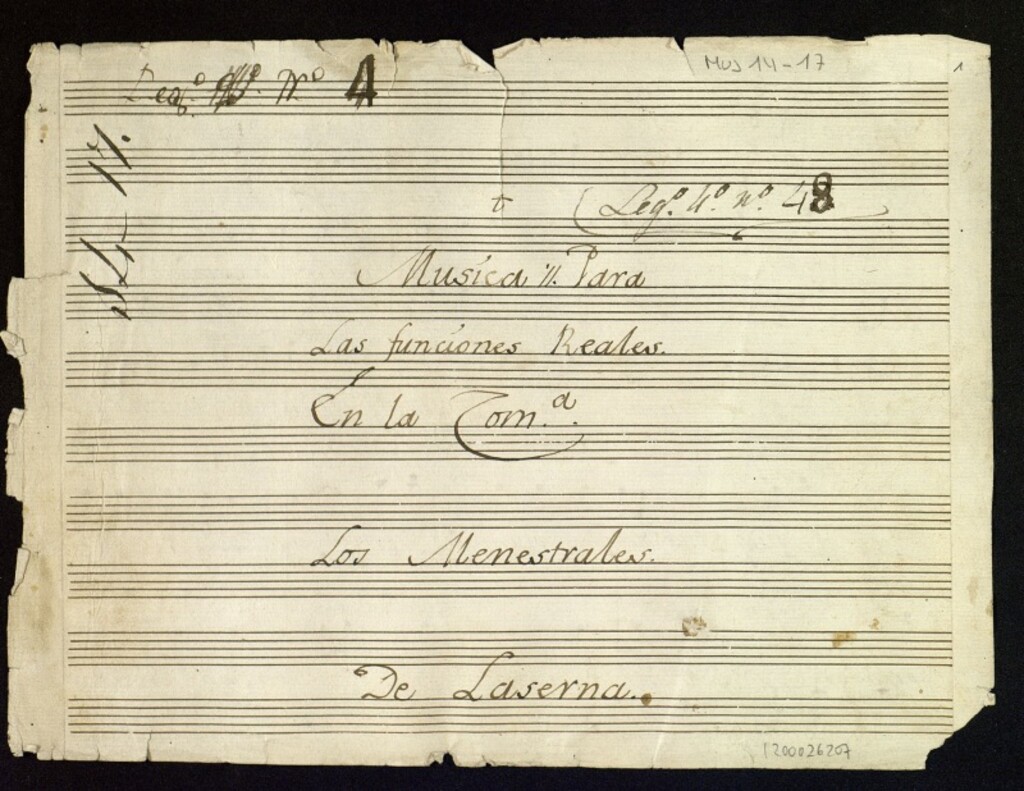 Mus 14-17
1
Leg.º Nº 4
14-17.
Leg.º 4.º nº 48
Musica //. Para
Las funciones Reales.
En la Com.ª
Los Menestrales.
De Laserna.
1200026207